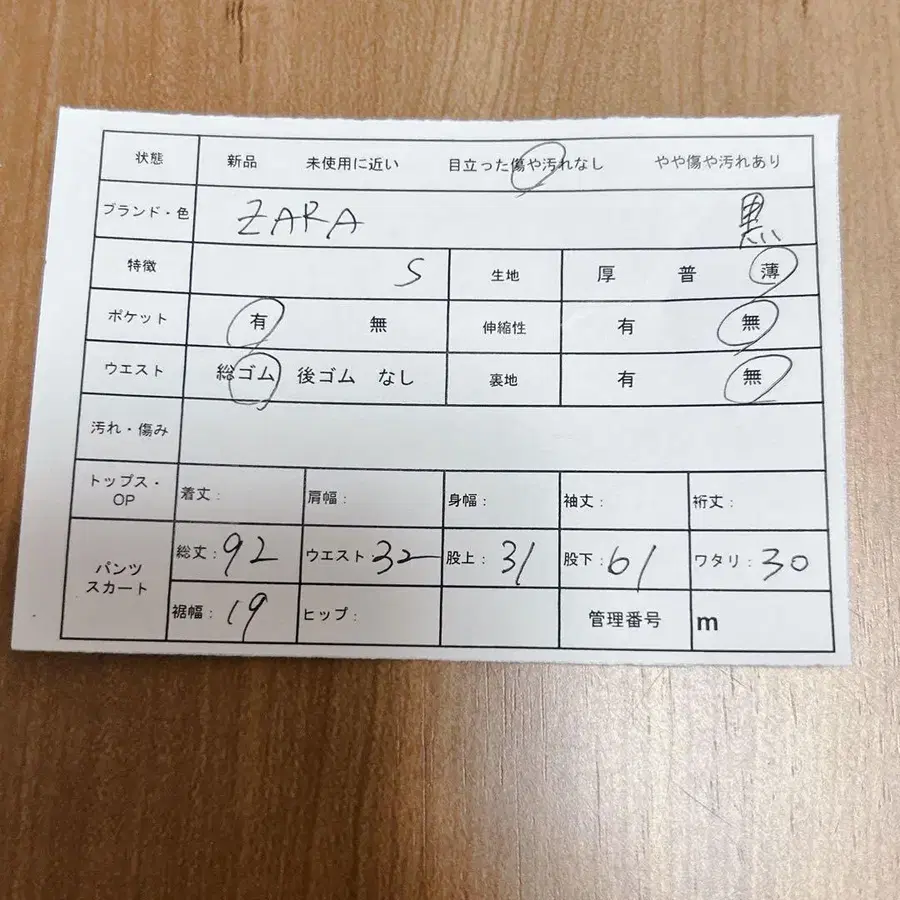 状態 新品 未使用に近い 目立った傷や汚れなし やや傷や汚れあり
ブランド・色 ZARA 黒
特徴 S 生地 厚 普 薄
ポケット 有 無 伸縮性 有 無
ウエスト 総ゴム 後ゴム なし 裏地 有 無
汚れ・傷み
トップス・OP 着丈: 肩幅: 身幅: 袖丈: 裄丈:
パンツ スカート 総丈:92 ウエスト:32 股上:31 股下:61 ワタリ:30
裾幅:19 ヒップ: 管理番号 m